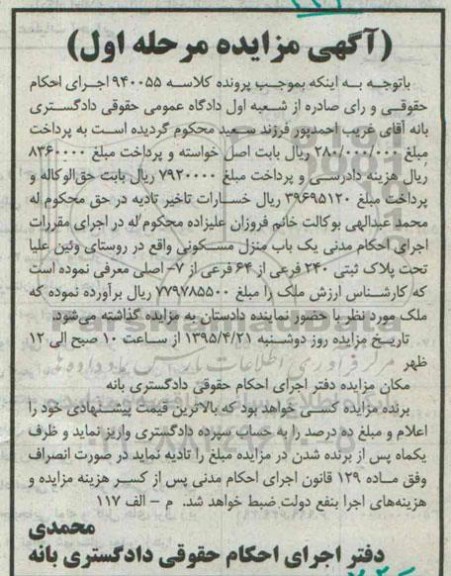 (آگهی مزایده مرحله اول)
باتوجه به اینکه بموجب پرونده کلاسه ۹۴۰۰۵۵ اجرای احکام
حقوقی و رای صادره از شعبه اول دادگاه عمومی حقوقی دادگستری
بانه آقای غریب احمدپور فرزند سعید محکوم گردیده است به پرداخت
مبلغ ۲۸۰/۰۰۰/۰۰۰ ریال بابت اصل خواسته و پرداخت مبلغ ۸۳۶۰۰۰۰
ریال هزینه دادرسی و پرداخت مبلغ ۷۹۲۰۰۰۰ ریال بابت حق‌الوکاله و
پرداخت مبلغ ۳۹۶۹۵۱۲۰ ریال خسارات تاخیر تادیه در حق محکوم له
محمد عبدالهی بوکالت خانم فروزان علیزاده محکوم له در اجرای مقررات
اجرای احکام مدنی یک باب منزل مسکونی واقع در روستای وئین علیا
تحت پلاک ثبتی ۲۴۰ فرعی از ۶۴ فرعی از ۷- اصلی معرفی نموده است
که کارشناس ارزش ملک را مبلغ ۷۷۹۷۸۵۵۰۰ ریال برآورده نموده که
ملک مورد نظر با حضور نماینده دادستان به مزایده گذاشته می‌شود.
تاریخ مزایده روز دوشنبه ۱۳۹۵/۴/۲۱ از ساعت ۱۰ صبح الی ۱۲
ظهر
مکان مزایده دفتر اجرای احکام حقوقی دادگستری بانه
برنده مزایده کسی خواهد بود که بالاترین قیمت پیشنهادی خود را
اعلام و مبلغ ده درصد را به حساب سپرده دادگستری واریز نماید و ظرف
یکماه پس از برنده شدن در مزایده مبلغ را تادیه نماید در صورت انصراف
وفق ماده ۱۲۹ قانون اجرای احکام مدنی پس از کسر هزینه مزایده و
هزینه‌های اجرا بنفع دولت ضبط خواهد شد. م - الف ۱۱۷
محمدی
دفتر اجرای احکام حقوقی دادگستری بانه